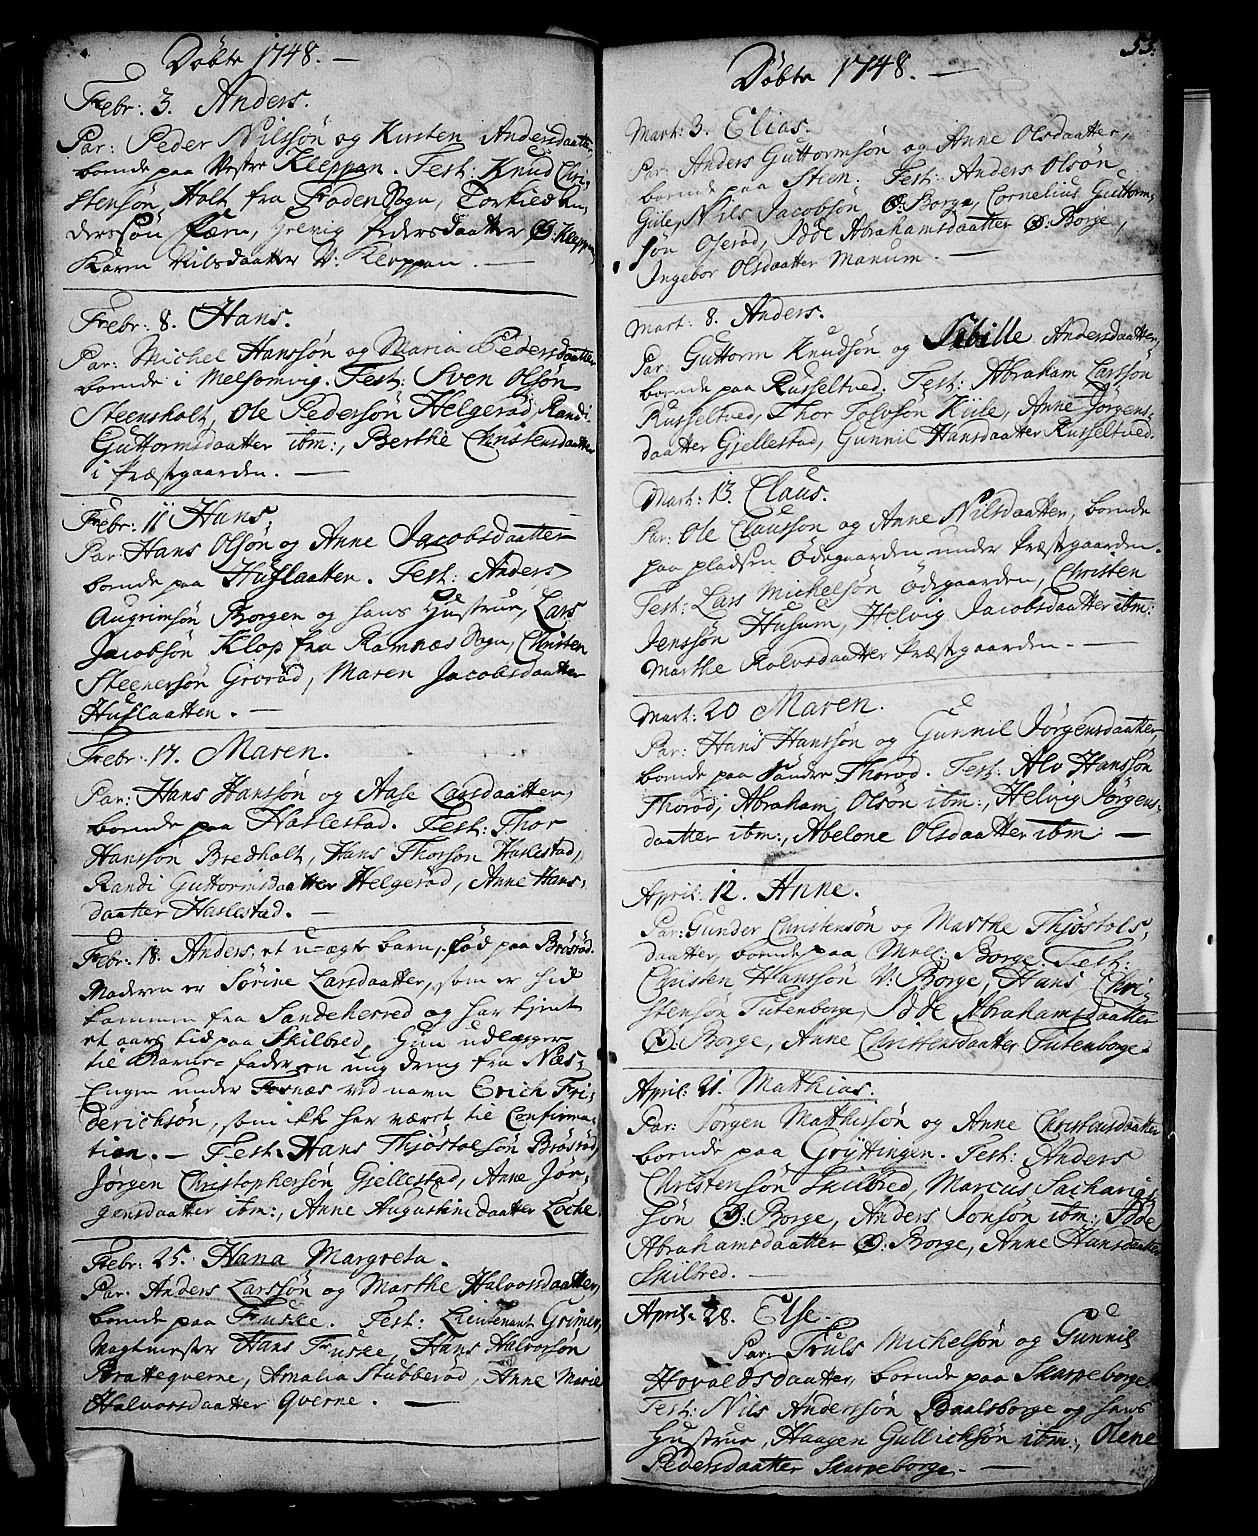 Döbte 1748. —
Febr: 3. Anders.
Par: Peder Nilssön og Kirsten Andersdaatter,
boende paa Vester Kleppan. Test: Knud Chri-
stensön Holt fra Sogn, Torkied An-
derssön Færn, Helvig Pedersdaatter Ø: Kleppan,
Karen Nilsdaatter V: Kleppan. —
Febr: 8. Hans.
Par: Michel Hanssön og Maria Pedersdaatter
boende i Melsomvig. Test: Sven Olsön
Steensholt, Ole Pedersön Helgeröd, Randi
Guttormsdaatter ibm:, Berthe Christensdaatter
i Præstgaarden. —
Febr: 11 Hans.
Par: Hans Olsön og Anne Jacobsdaatter
boende paa Huslaatten. Test: Anders
Augrimsön Borgen og hans Hustrue, Lars
Jacobsön Klop fra Ramnæs Sogn, Christen
Steenersön Groröd, Maren Jacobsdaatter
Huslaatten. —
Febr: 17. Maren.
Par: Hans Hansön og Aase Larsdaatter,
boende paa Haslestad. Test: Thor
Hansson Bredholt, Hans Thorson Haslestad,
Randi Guttormsdaatter Helgeröd, Anne Hans-
daatter Haslestad. —
Febr: 18. Anders, et u-ægte barn, föd paa Bröröd.
Moderen er Sörine Larsdaatter, som er hid
kommen fra Sandeherred og har tjent
et aars tid paa Skilbred, Hun udlegger
til Barne-fader en ung dreng fra Næs-
Engen under Fosnæs ved navn Erich Fri-
derichsön, som ikke har været til Confirma-
tion. — Test: Hans Thjöstolsön Bröröd
Jörgen Christophersön Gjellestad, Anne Jör-
gensdaatter ibm:, Anne Augustini daatter Löche.
Febr: 25. Hana Margreta.
Par: Anders Larssön og Marthe Halvorsdaatter,
boende paa Fuske. Test: Lieutenant Grimer,
Vagtmester Hans Fuske, Hans Halvorsön
Bratteqverne, Amalia Stubberöd, Anne Marie
Halvorsdaatter Qverne. —
53.
Döbte 1748. —
Mart: 3. Elias.
Par: Anders Guttormsön og Anne Olsdaatter,
boende paa Steen. Test: Anders Olsön
Gile, Nils Jacobsön Ø: Borge, Cornelius Guttorm-
sön Oseröd, Idde Abrahamsdaatter Ø: Borge,
Ingebor Olsdaatter Manum. —
Mart: 8. Anders.
Par: Guttorm Knudsön og Sibille Andersdaatter,
boende paa Russeltved. Test: Abraham Larssön
Russeltved, Thor Tolvson Kiile, Anne Jörgens-
daatter Gjellestad, Gunnil Hansdaatter Russeltved.
Mart: 13. Claus.
Par: Ole Claussön og Anne Nilsdaatter, boende
paa pladsen Ödegaarden under Præstgaarden.
Test: Lars Michelsön Ödegaarden, Christen
Jenssön Husum, Helvig Jacobsdaatter ibm:
Marthe Rolvsdaatter Præstgaarden. —
Mart: 20 Maren.
Par: Hans Hanssön og Gunnil Jörgensdaatter
boende paa Sönder Thoröd. Test: Alv Hanssön
Thoröd, Abraham Olsön ibm:, Helvig Jörgens-
daatter ibm:, Abelone Olsdaatter ibm: —
April: 12. Anne.
Par: Gunder Christensön og Marthe Thjöstols-
daatter, boende paa Mell: Borge. Test:
Christen Hanssön V: Borge, Hans Chri-
stensön Tutenborge, Idde Abrahamsdaatter
Ø: Borge, Anne Christensdaatter Tutenborge.
April: 21. Mathias.
Par: Jorgen Mathissön og Anne Christensdaatter
boende paa Gryttingen. Test: Anders
Christensön Skilbred, Marcus Sacharias
sön Ø: Borge, Anders Jonsön ibm:, Idde
Abrahamsdaatter Ø: Borge, Anne Hansdaatter
Skilbred. —
April: 28. Else.
Par: Truls Michelsön og Gunnil
Hovaldsdaatter, boende paa Skarpeborge.
Test: Nils Anderssön Baalsborge og hans
Hustrue, Haagen Gullichsön ibm:, Olene
Pedersdaatter Skarpeborge. —